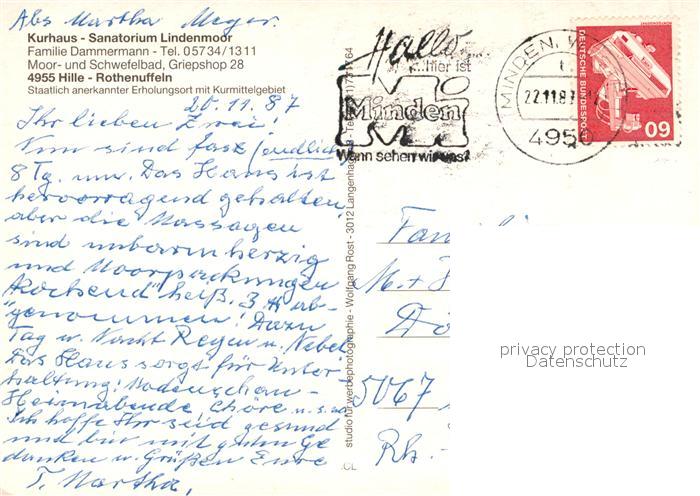 Abs Martha Meyer.
Kurhaus - Sanatorium Lindenmoor
Familie Dammermann - Tel. 05734/1311
Moor- und Schwefelbad, Griepshop 28
4955 Hille - Rothenuffeln
Staatlich anerkannter Erholungsort mit Kurmittelgebiet
20.11.87
Ihr lieben Zwei!
Nun sind fast (endlich)
8 Tg. um. Das Haus ist
hervorragend gehalten
aber die Massagen
sind unbarmherzig
und Moorpackungen
"kochend" heiß. 3 ab-
genommen! Dazu
Tag u. Nacht Regen u. Nebel
Das Haus sorgt für Unter
haltung: Modenschau -
Heimabende, Chöre u.s.w.
Ich hoffe Ihr seid gesund
und bin mit guten Ge
danken u. Grüßen Eure
T. Martha.
studio für werbephotographie - Wolfgang Rost - 3012 Langenhagen
CL
Hallo
hier ist
Minden
Wann sehen wir uns?
MINDEN, W
22.11.87
4950
DEUTSCHE BUNDESPOST
60
Fam
M. +
5067
Rh. -
privacy protection
Datenschutz